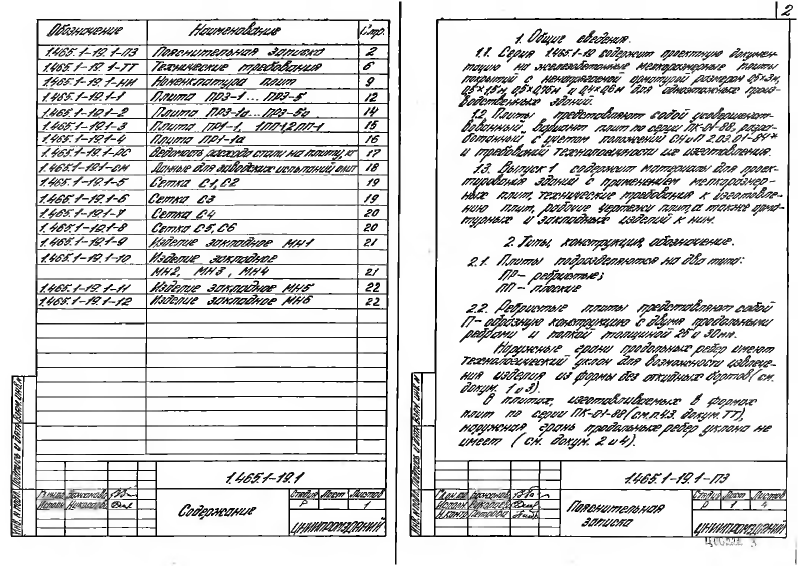 Обозначение Наименование Стр.
1.465.1-19.1-ПЗ Пояснительная записка 2
1.465.1-19.1-ТТ Технические требования 6
1.465.1-19.1-НИ Номенклатура плит 9
1.465.1-19.1-1 Плита ПР3-1 ... ПР3-5 12
1.465.1-19.1-2 Плита ПР3-1а ... ПР3-5а 14
1.465.1-19.1-3 Плита ПР1-1, 1ПП-1,2ПП-1 15
1.465.1-19.1-4 Плита ПР1-1а 16
1.465.1-19.1-РС Ведомость расхода стали на плиту, кг 17
1.465.1-19.1-ДИ Данные для заводских испытаний плит 18
1.465.1-19.1-5 Сетка С1, С2 19
1.465.1-19.1-6 Сетка С3 19
1.465.1-19.1-7 Сетка С4 20
1.465.1-19.1-8 Сетка С5, С6 20
1.465.1-19.1-9 Изделие закладное МН1 21
1.465.1-19.1-10 Изделие закладное
МН2, МН3, МН4 21
1.465.1-19.1-11 Изделие закладное МН5 22
1.465.1-19.1-12 Изделие закладное МН6 22
1.465.1-19.1
Содержание
Стадия Лист Листов
Р 1
ЦНИИПРОМЗДАНИЙ
2
1. Общие сведения.
1.1. Серия 1.465.1-19 содержит проектную докумен-
тацию на железобетонные мелкоразмерные плиты
покрытий с ненапрягаемой арматурой размером 0,5×3м,
0,5×1,5м, 0,5×0,75м и 0,4×0,6м для одноэтажных произ-
водственных зданий.
1.2. Плиты представляют собой усовершенст-
вованный вариант плит по серии ПК-01-88, разра-
ботанный с учетом положений СНиП 2.03.01-84*
и требований технологичности их изготовления.
1.3. Выпуск 1 содержит материалы для проек-
тирования зданий с применением мелкоразмер-
ных плит, технические требования к изготовле-
нию плит, рабочие чертежи плит, а также арма-
турных и закладных изделий к ним.
2. Типы, конструкция, обозначение.
2.1. Плиты подразделяются на два типа:
ПР - ребристые;
ПП - плоские
2.2. Ребристые плиты представляют собой
П-образную конструкцию с двумя продольными
ребрами и полкой толщиной 25 и 30мм.
Наружные грани продольных ребер имеют
технологический уклон для возможности извлече-
ния изделия из формы без откидных бортов (см.
докум. 1 и 3).
В плитах, изготавливаемых в формах
плит по серии ПК-01-88 (см. п.4.3. докум. ТТ),
наружная грань продольных ребер уклона не
имеет (см. докум. 2 и 4).
1.465.1-19.1-ПЗ
Пояснительная
записка
Стадия Лист Листов
Р 1 4
ЦНИИПРОМЗДАНИЙ